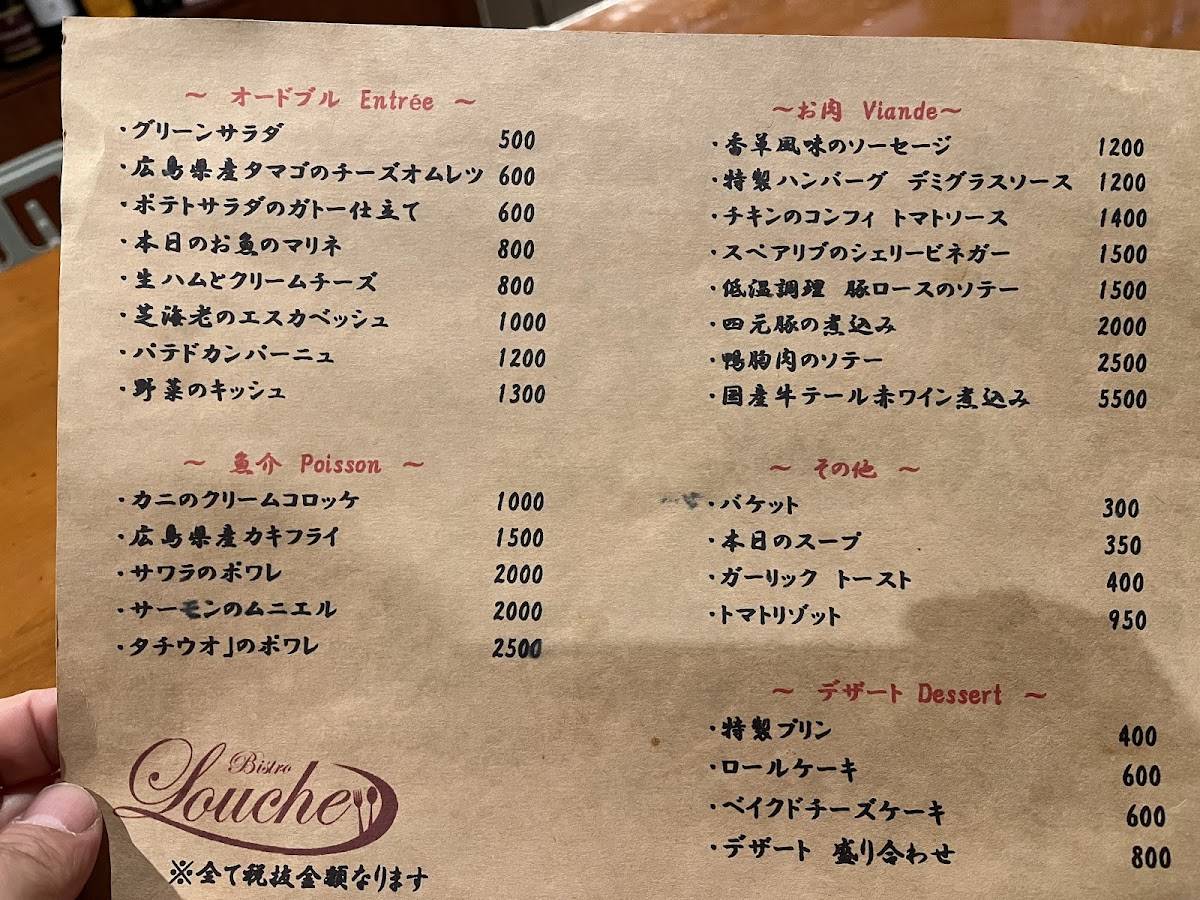 ～ オードブル Entrée ～
・グリーンサラダ 500
・広島県産タマゴのチーズオムレツ 600
・ポテトサラダのガトー仕立て 600
・本日のお魚のマリネ 800
・生ハムとクリームチーズ 800
・芝海老のエスカベッシュ 1000
・パテドカンパーニュ 1200
・野菜のキッシュ 1300
～ 魚介 Poisson ～
・カニのクリームコロッケ 1000
・広島県産カキフライ 1500
・サワラのポワレ 2000
・サーモンのムニエル 2000
・タチウオ」のポワレ 2500
Bistro
Louche
※全て税抜金額なります
～お肉 Viande～
・香草風味のソーセージ 1200
・特製ハンバーグ デミグラスソース 1200
・チキンのコンフィ トマトソース 1400
・スペアリブのシェリービネガー 1500
・低温調理 豚ロースのソテー 1500
・四元豚の煮込み 2000
・鴨胸肉のソテー 2500
・国産牛テール赤ワイン煮込み 5500
～ その他 ～
・バケット 300
・本日のスープ 350
・ガーリック トースト 400
・トマトリゾット 950
～ デザート Dessert ～
・特製プリン 400
・ロールケーキ 600
・ベイクドチーズケーキ 600
・デザート 盛り合わせ 800